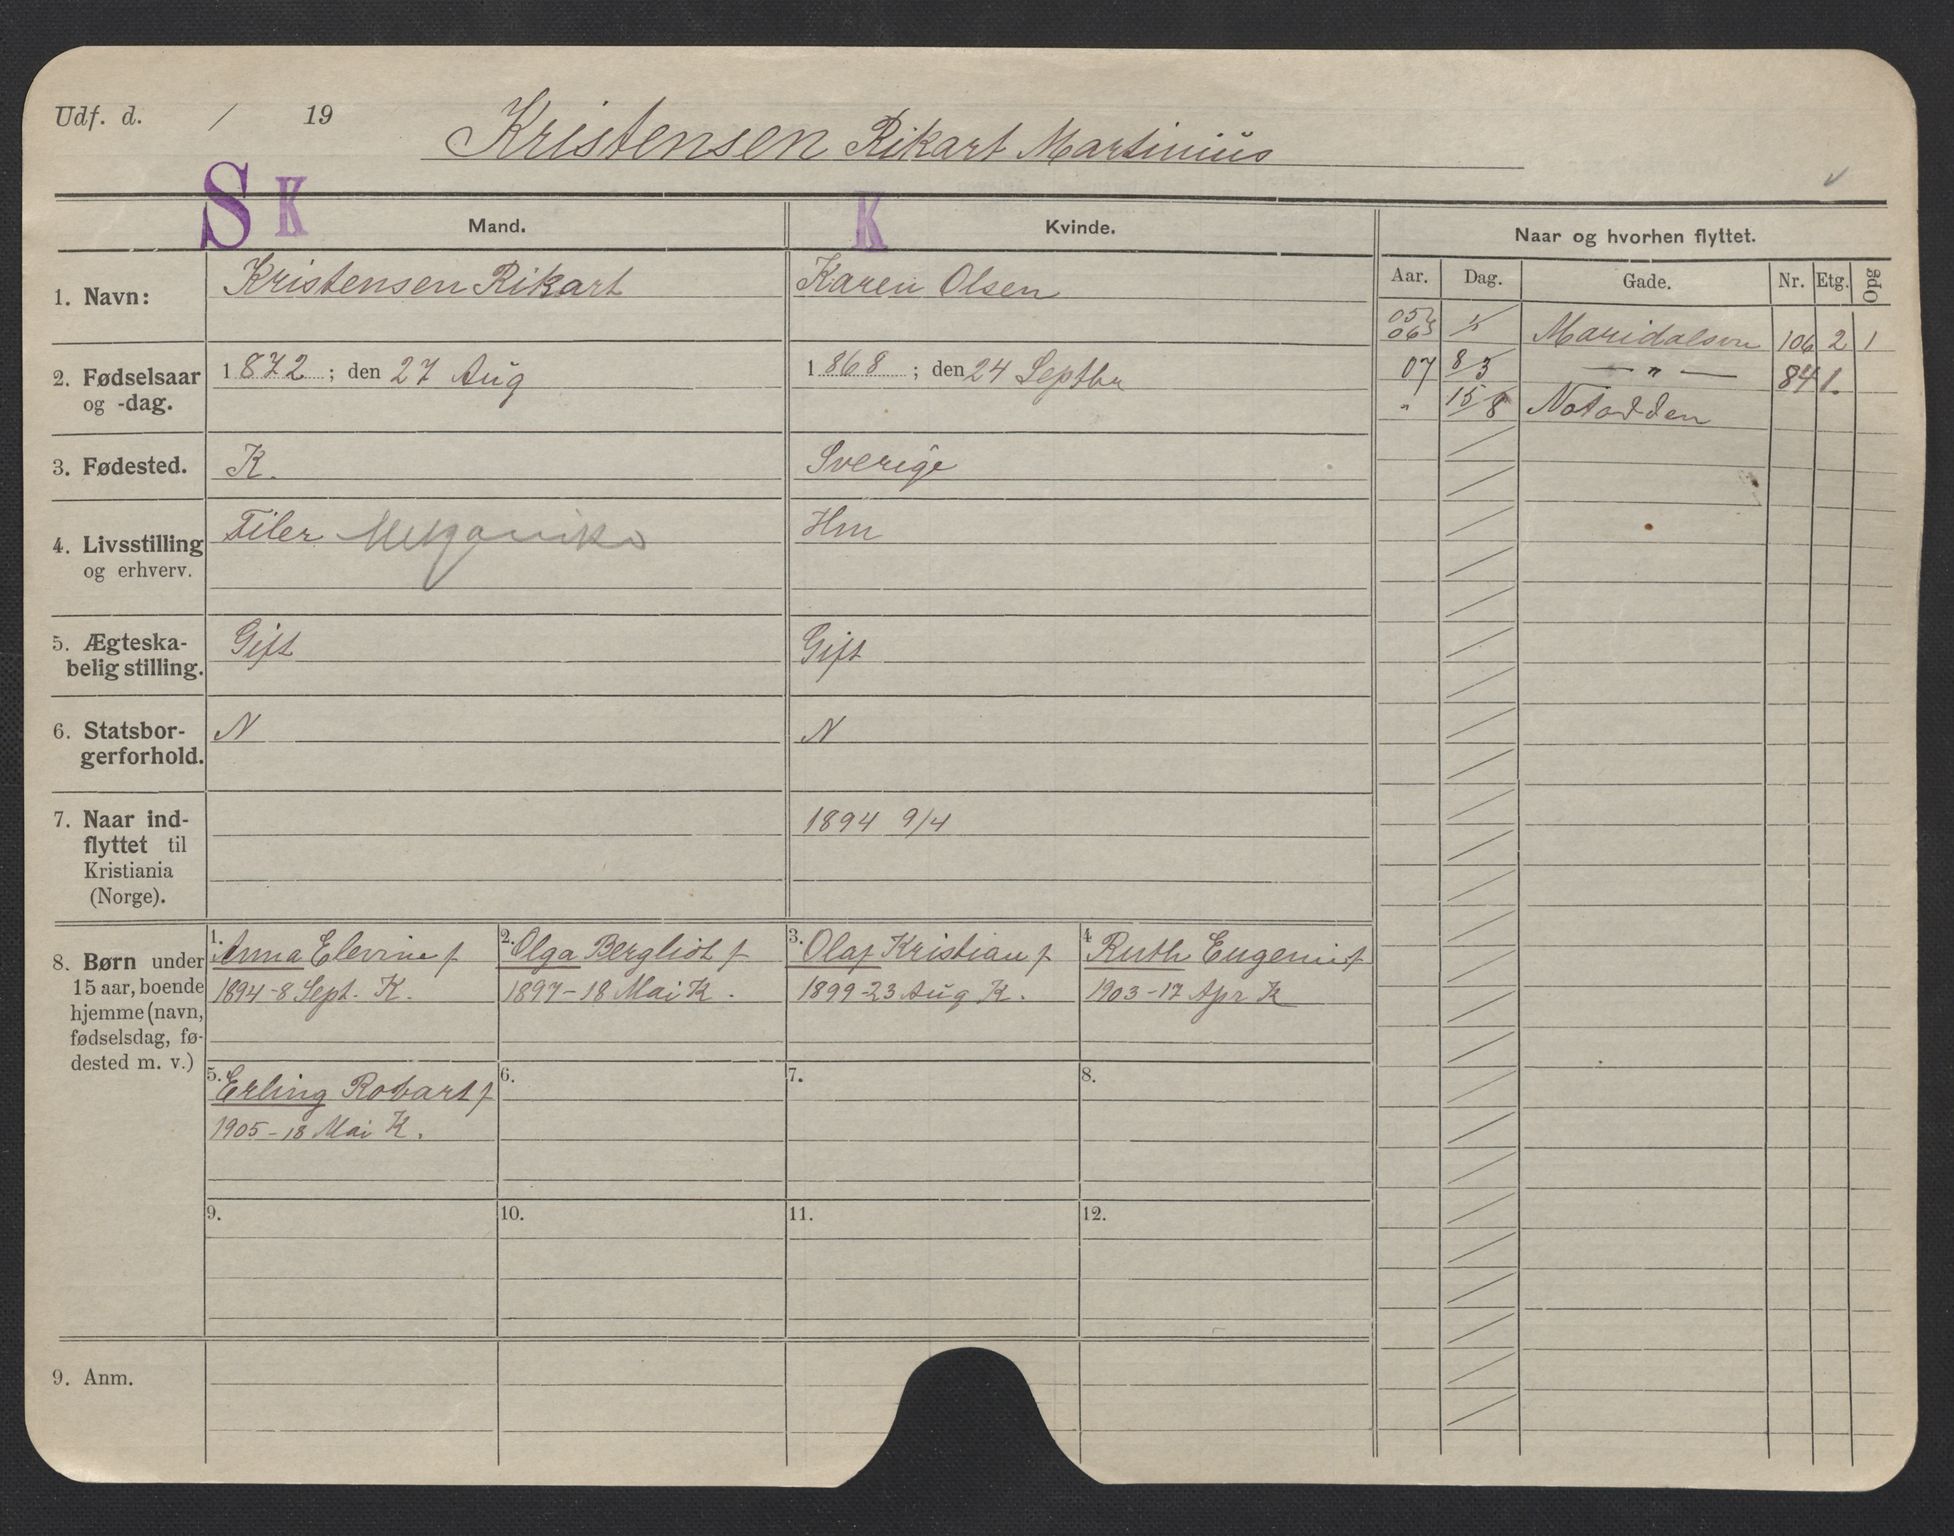 Udf. d. / 19
Kristensen Rikart Martinius
S K K
Mand. Kvinde. Naar og hvorhen flyttet.
Aar. Dag. Gade. Nr. Etg. Opg
1. Navn: Kristensen Rikart Karen Olsen
05
06 1/5 Maridalsvn 106 2 1
2. Fødselsaar og -dag. 1872; den 27 Aug 1868; den 24 Septbr
07 8/3 — " — 84 1.
" 15/8 Notodden
3. Fødested. K. Sverige
4. Livsstilling og erhverv. Filer Hm
5. Ægteska-
belig stilling. Gift Gift
6. Statsbor-
gerforhold. N N
7. Naar ind-
flyttet til
Kristiania
(Norge). 1894 9/4
8. Børn under
15 aar, boende
hjemme (navn,
fødselsdag, fø-
dested m. v.)
1. Anna Elevine f
1894-8 Sept. K.
2. Olga Bergliot f
1897-18 Mai K.
3. Olaf Kristian f
1899-23 Aug K.
4 Ruth Eugenie f
1903-17 Apr K
5. Erling Robart f
1905-18 Mai K.
6.
7.
8.
9.
10.
11.
12.
9. Anm.